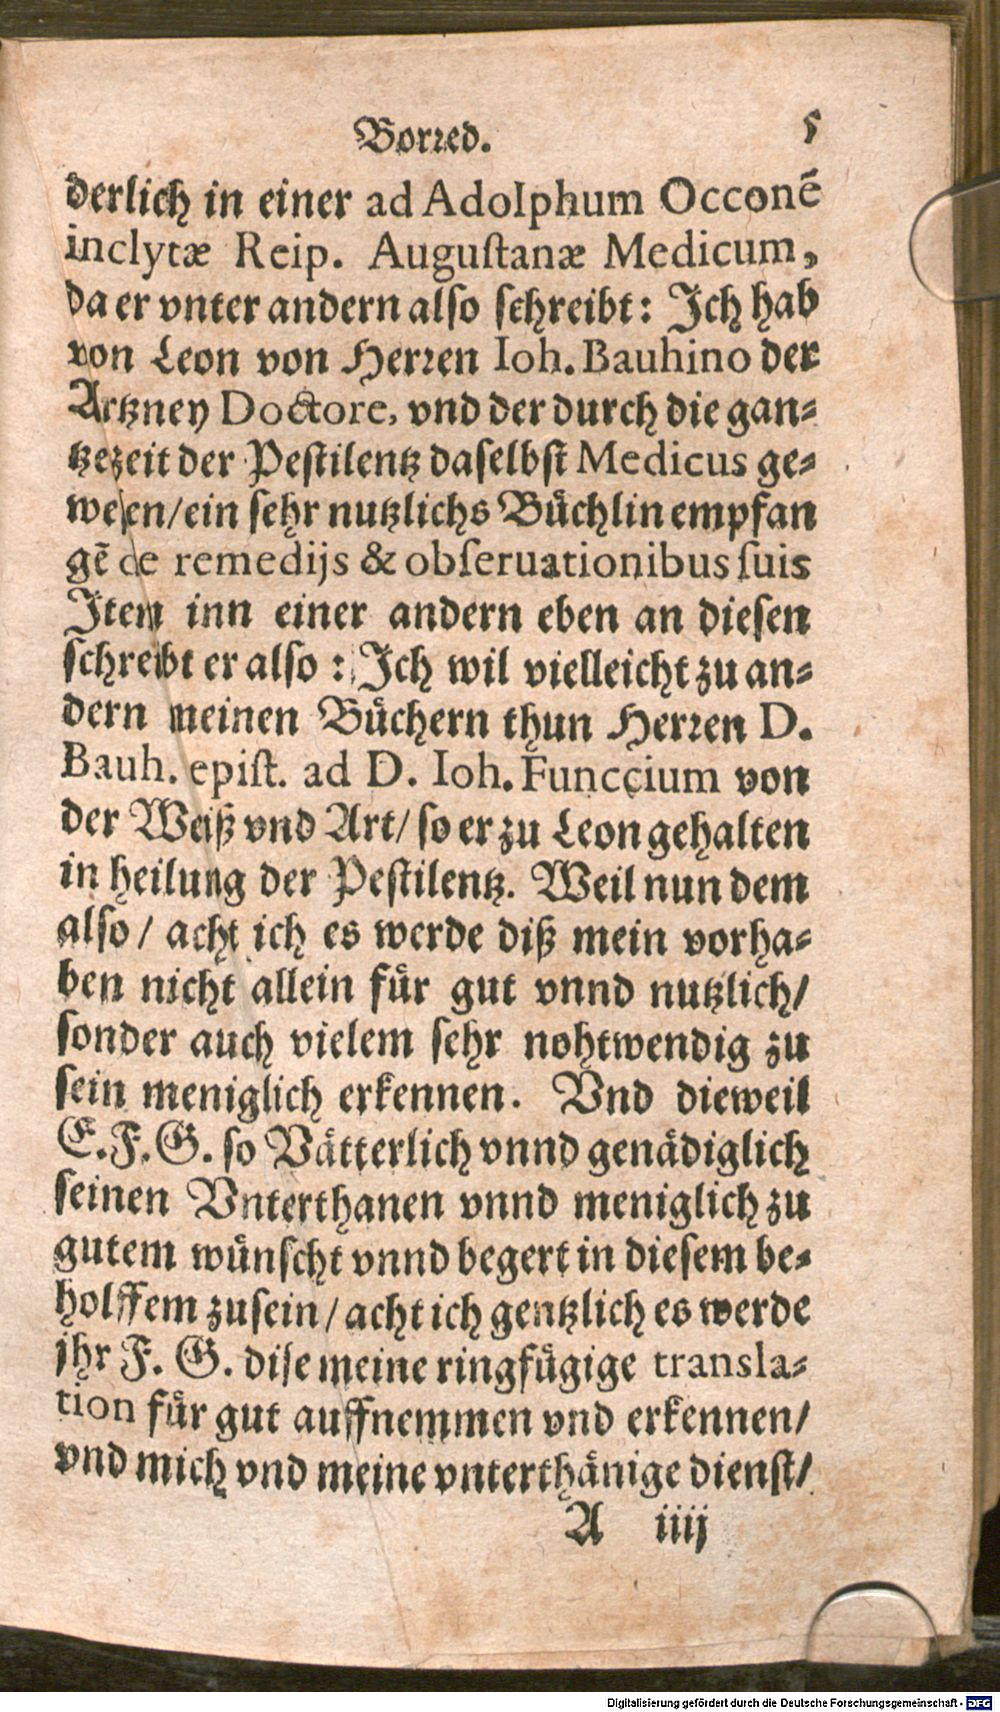 Vorred. 5
derlich in einer ad Adolphum Occonē
inclytæ Reip. Augustanæ Medicum,
da er vnter andern also schreibt: Ich hab
von Leon von Herren Ioh. Bauhino der
Artzney Doctore, vnd der durch die gan-
tze zeit der Pestilentz daselbst Medicus ge-
wesen/ein sehr nutzlichs Bůchlin empfan
gē de remedijs & obseruationibus suis
Item inn einer andern eben an diesen
schreibt er also: Ich wil vielleicht zu an-
dern meinen Bůchern thun Herren D.
Bauh. epist. ad D. Ioh. Funccium von
der Weiß vnd Art/ so er zu Leon gehalten
in heilung der Pestilentz. Weil nun dem
also/ acht ich es werde diß mein vorha-
ben nicht allein fůr gut vnnd nutzlich/
sonder auch vielem sehr nohtwendig zu
sein meniglich erkennen. Vnd dieweil
E.F.G. so Vätterlich vnnd genädiglich
seinen Vnterthanen vnnd meniglich zu
gutem wůnscht vnnd begert in diesem be-
holffem zusein/ acht ich gentzlich es werde
jhr F. G. dise meine ringfůgige transla-
tion fůr gut auffnemmen vnd erkennen/
vnd mich vnd meine vnterthänige dienst/
A iiij
Digitalisierung gefördert durch die Deutsche Forschungsgemeinschaft - DFG